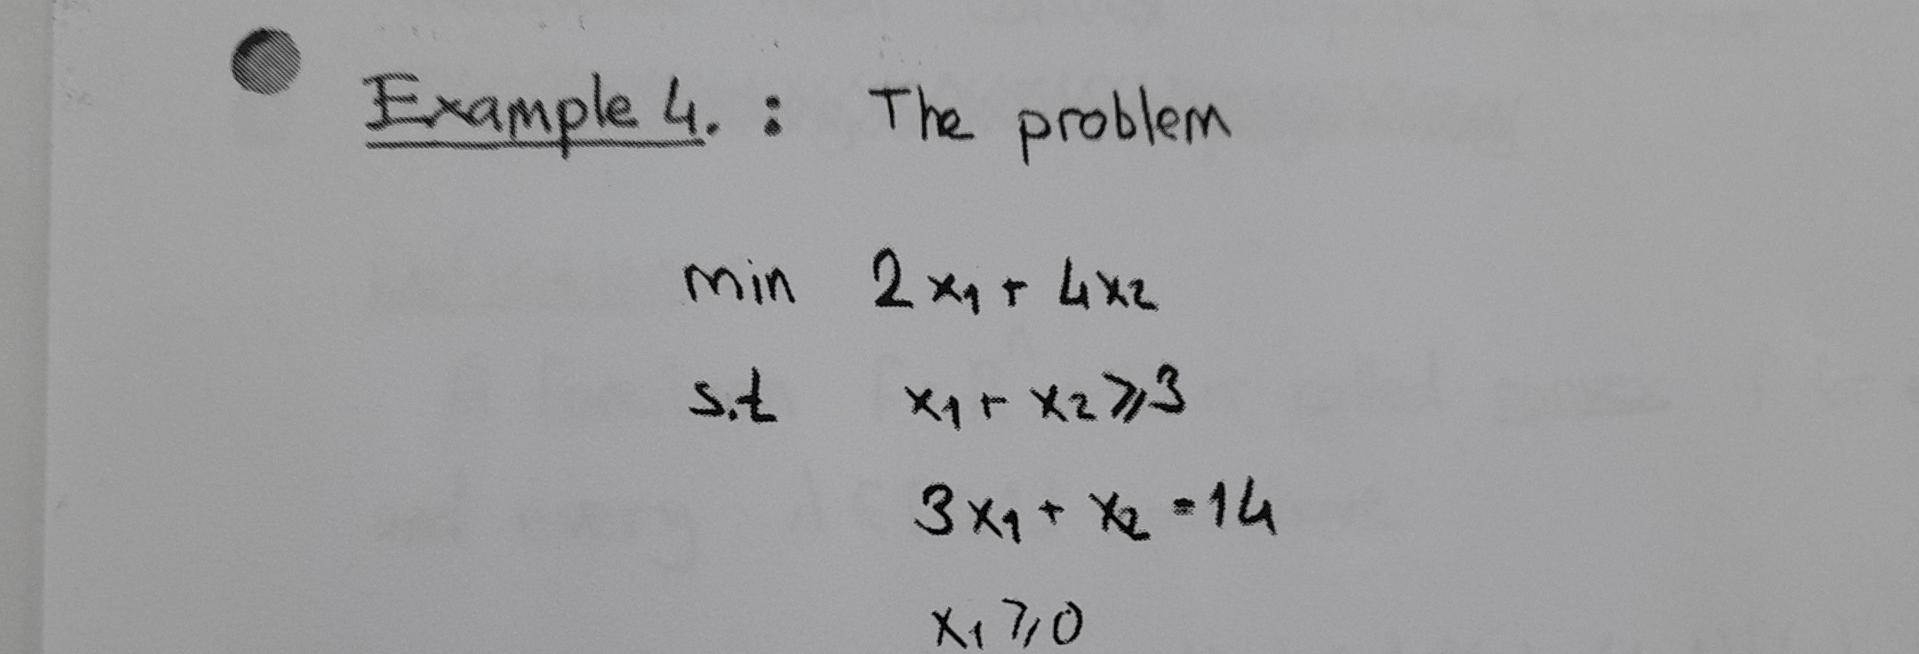 Example 4. : The problem
min 2x₁ + 4x₂
s.t x₁ + x₂ ⩾ 3
3x₁ + x₂ = 14
x₁ ⩾ 0